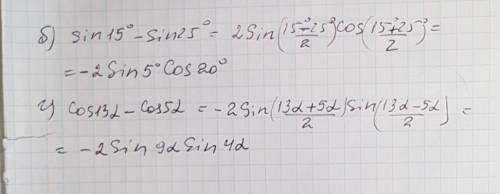 б) sin15° - sin25° = 2Sin(15°-25°/2)cos(15°+25°/2) =
= -2Sin5°Cos20°
г) cos13α - cos5α = -2Sin(13α+5α/2)sin(13α-5α/2) =
= -2Sin9αSin4α